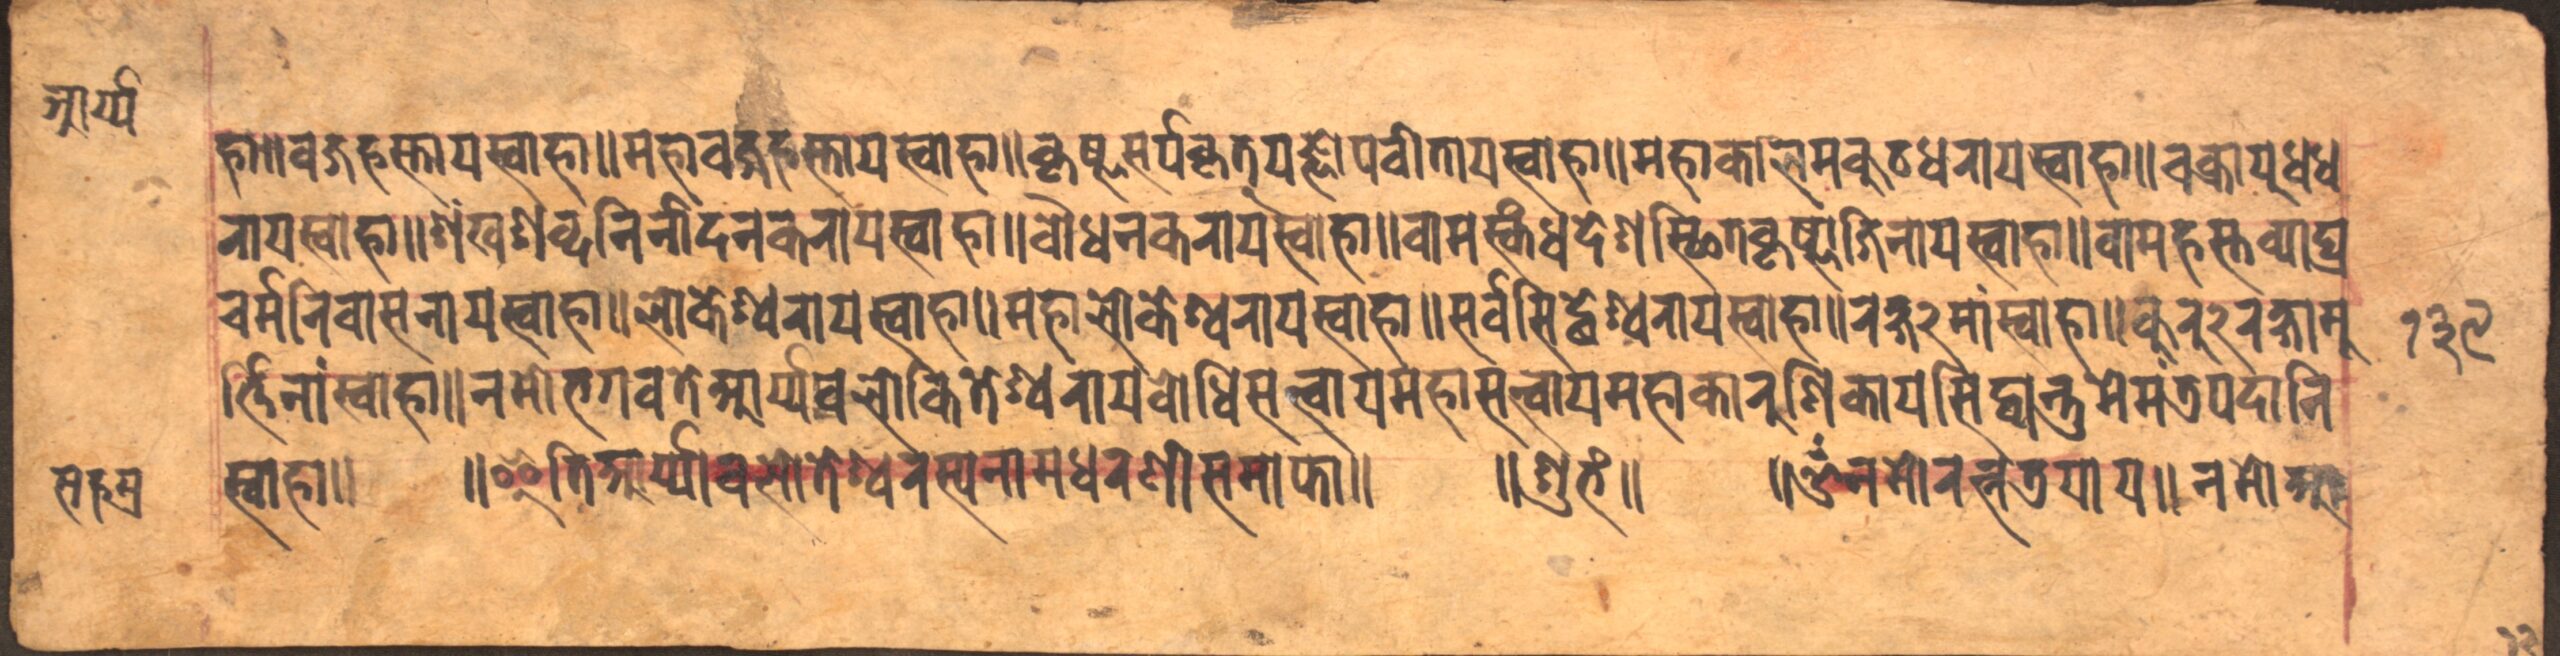 आर्य्य
हा॥वज्रहस्तायस्वाहा॥महावज्रहस्तायस्वाहा॥कृष्णसर्पकृतयज्ञोपवीतायस्वाहा॥महाकालमकुठधरायस्वाहा॥चक्रायुधध
रायस्वाहा॥शंखशब्दनिर्नादनकरायस्वाहा॥बौधनकरायस्वाहा॥वामस्कंधदेशस्थितकृष्णाजिनायस्वाहा॥वामहस्तव्याघ्र
चर्मनिवासनायस्वाहा॥लोकेश्वरायस्वाहा॥महालोकेश्वरायस्वाहा॥सर्वसिद्धेश्वरायस्वाहा॥रक्ष२मांस्वाहा॥कुरु२रक्षामू
१३९
र्त्तिनांस्वाहा॥नमोभगवतेआर्य्यवलोकितेश्वरायबोधिसत्वायमहासत्वायमहाकारुणिकायसिद्ध्यन्तुमेमंत्रपदानि
सहस्र
स्वाहा॥ ॥इतिआर्य्यावलोतेश्वरस्यनामधरणीसमाप्ता॥ ॥शुभं॥ ॥ॐनमोरत्नत्रयाय॥नमोआ